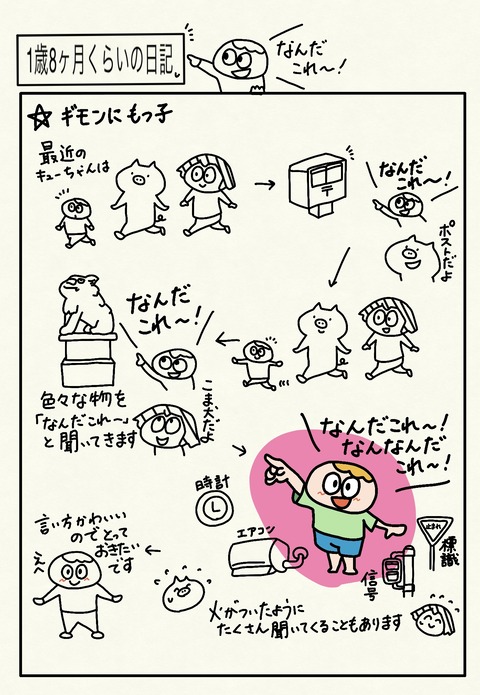 1歳8ヶ月くらいの日記
なんだ
これ〜！
☆ ギモンにもつ子
最近の
キューちゃんは
〒
なんだ
これ〜！
ポストだよ
なんだ
これ〜！
こま犬だよ
色々な物を
「なんだこれ〜」
と聞いてきます
なんだこれ〜！
なんなんだ
これ〜！
時計
エアコン
止まれ
標識
信号
火がついたように
たくさん聞いてくることもあります
言い方かわいい
のでとって
おきたい
です
え〜